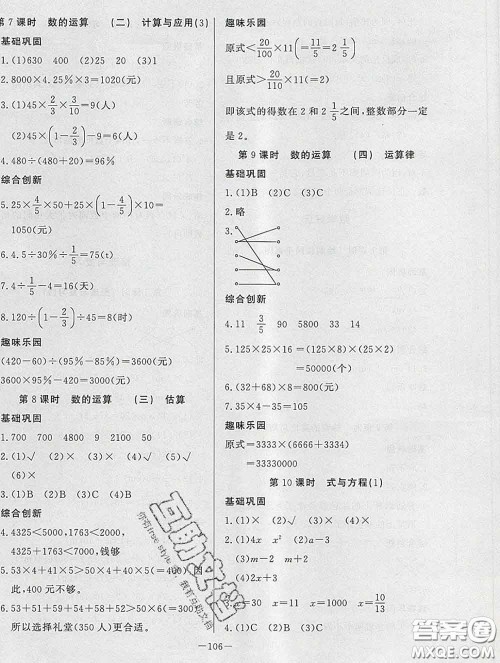 第7课时 数的运算 (二) 计算与应用(3)
基础巩固
1.(1)630 400 (2)C
2.8000×4.25%×3=1020(元)
3.(1)45×2/3×3/10=9(人)
(2)45×(1-2/3-9/45)=6(人)
4.480÷(480+20)=96%
综合创新
5.25×4/5×50+25×(1-4/5)×10=
1050(元)
6.4.5÷30%÷1/5=75(t)
7.4÷1/5-4=16(天)
8.120÷(1-2/3)÷45=8(时)
趣味乐园
(420-60)÷(95%-85%)=3600(元)
3600×95%-420=3000(元)
第8课时 数的运算 (三) 估算
基础巩固
1.700 700 4800 9 2100 50
2.(1)√ (2)× (3)× (4)√ (5)√
(6)×
3.(1)B (2)C (3)C
综合创新
4.4325<5000,1763<2000,
4325+1763<7000,钱够
5.53+41+51+58>50×4+50×4(=400),因
此,400元不够。
6.53+51+59+58+56+54>50×6(=300),
所以选择礼堂(350人)更合适。
趣味乐园
原式<20/100×11(=11/5)=2 1/5
且原式>20/110×11(=2)
即该式的得数在2和2 1/5之间,整数部分一定
是2。
第9课时 数的运算 (四) 运算律
基础巩固
1.(1)B (2)C (3)C
2.略
3.
综合创新
4.11 3/5 90 5800 33 14
5.125×25×16=(125×8)×(25×2)=
50000(个)
6.(32+68)×8=800(个)
7.35×4-35=105
趣味乐园
原式=3333×(6666+3334)
=33330000
第10课时 式与方程(1)
基础巩固
1.(1)× (2)√ (3)× (4)√
2.(1)4x x² (2)a-3
(3)m-2 m+2
(4)2x+3
=30 x=11 x=1000 x=10/13
(1)B (2)C (3)B (4)C
—106—
互助文档
答案圈
MXQE.COM